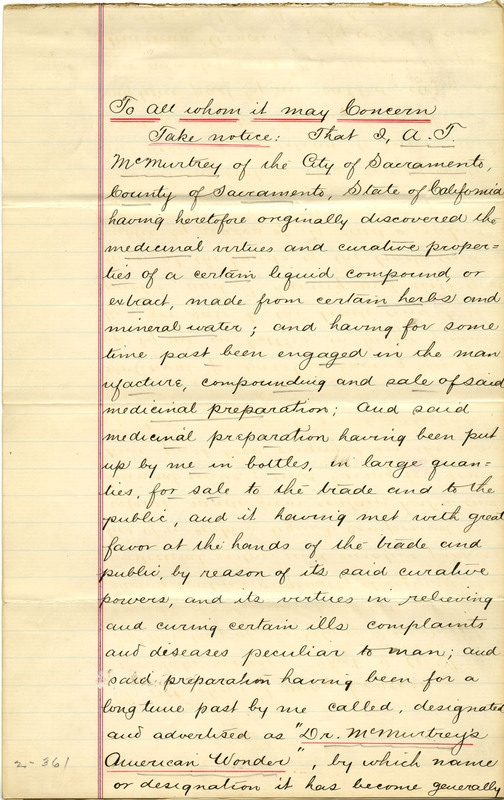 To all whom it may Concern
Take notice: That I, A. T.
McMurtrey of the City of Sacramento,
County of Sacramento, State of California
having heretofore originally discovered the
medicinal virtues and curative proper=
ties of a certain liquid compound, or
extract, made from certain herbs and
mineral water; and having for some
time past been engaged in the man
ufacture, compounding and sale of said
medicinal preparation; And said
medicinal preparation having been put
up by me in bottles, in large quan=
ties, for sale to the trade and to the
public, and it having met with great
favor at the hands of the trade and
public, by reason of its said curative
powers, and its virtues in relieving
and curing certain ills complaints
and diseases peculiar to man; and
said preparation having been for a
long time past by me called, designated
and advertised as "Dr. McMurtrey's
American Wonder", by which name
or designation it has become generally
2-361